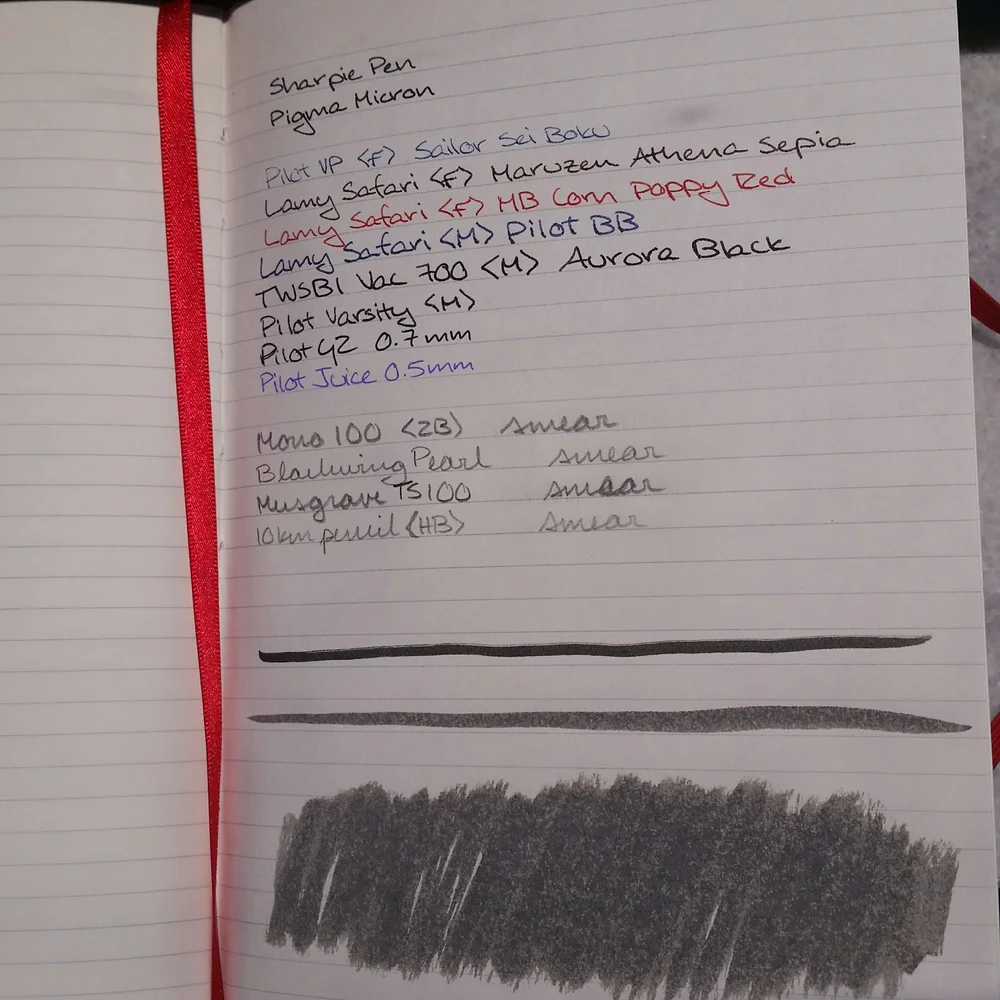 Sharpie Pen
Pigma Micron
Pilot VP <F> Sailor Sei Boku
Lamy Safari <F> Maruzen Athena Sepia
Lamy Safari <F> MB Corn Poppy Red
Lamy Safari <M> Pilot BB
TWSBI Vac 700 <M> Aurora Black
Pilot Varsity <M>
Pilot G2 0.7mm
Pilot Juice 0.5mm
Mono 100 <2B> smear
Blackwing Pearl smear
Musgrave TS100 smear
10km pencil <HB> smear